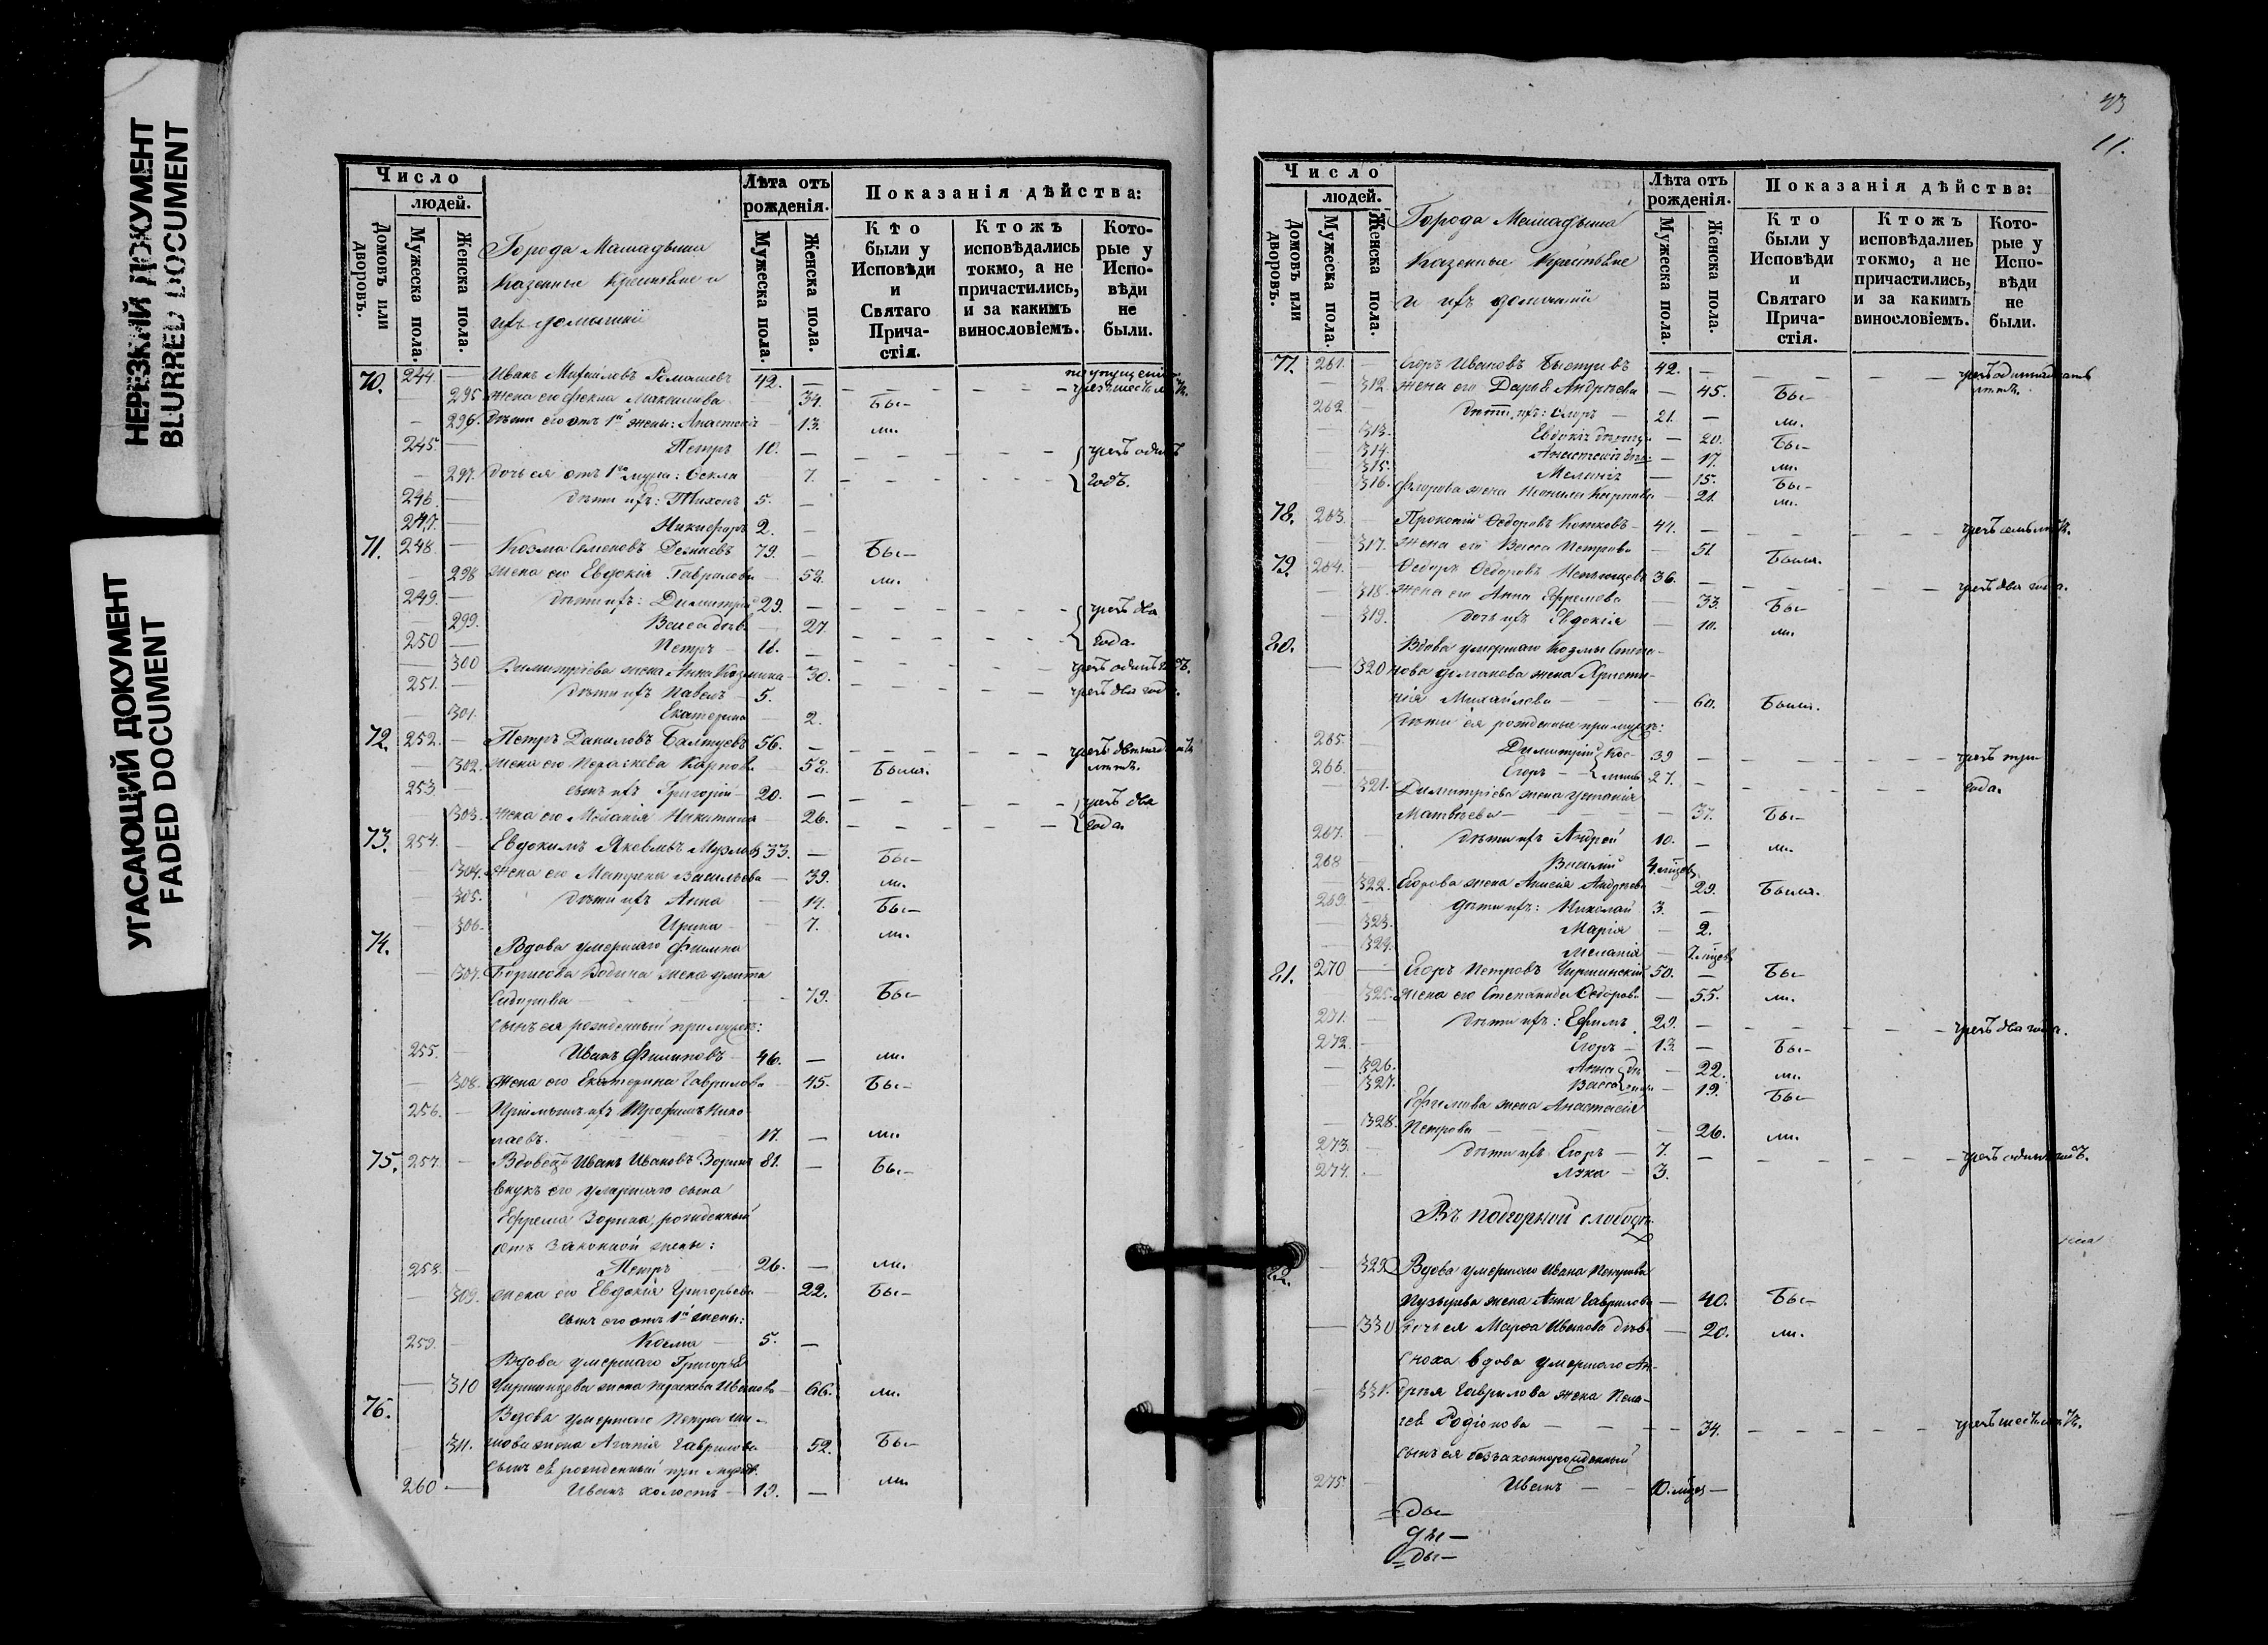 НЕРЕЗКИЙ ДОКУМЕНТ
BLURRED DOCUMENT
УГАСАЮЩИЙ ДОКУМЕНТ
FADED DOCUMENT
Число
людей.
Домовъ или дворовъ.
Мужеска пола.
Женска пола.
Города Мамадыша
Казенные Крестьяне и
ихъ домашнiи
Лѣта отъ рожденiя.
Мужеска пола.
Женска пола.
Показанiя дѣйства:
Кто были у Исповѣди и Святаго Прича-стiя.
Ктожъ исповѣдались токмо, а не причастились, и за какимъ винословiемъ.
Кото-рые у Испо-вѣди не были.
70. 244. Иванъ Михайловъ 42. по упущенiю
295 Жена его Фекла 34. Бы-
296. Дѣти его отъ 1й жены: Анастасiя 13. ли.
245. Петръ 10. чрезъ одинъ
297. Дочь ея отъ 1го мужа: Ѳекла 7. годъ.
246. Дѣти ихъ: Тихонъ 5.
247. Никифоръ 2.
71. 248. Козма Семеновъ 79. Бы-
298 Жена его Евдокiя Гаврилова 52. ли.
249. Дѣти ихъ: Димитрiй 29. чрезъ два
299. Васса дѣв. 27.
250 Петръ 18. года.
300 Димитрiева жена Анна Козмина 30. чрезъ одинъ годъ.
251. Дѣти ихъ Павелъ 5. чрезъ два года.
301. Екатерина 2.
72. 252. Петръ Даниловъ 56.
302. Жена его Параскева Карпова 52. Была. лѣтъ.
253 сынъ ихъ Григорiй 20. чрезъ два
303. Жена его Меланiя Никитина 26. года.
73. 254. Евдокимъ Яковлевъ 33. Бы-
304. Жена его Матрена Васильева 39. ли.
305. Дѣти ихъ Анна 14. Бы-
306. Ирина 7. ли.
74. Вдова умершаго Филипа
307. Борисова жена Улита
Сидорова 79. Бы-
Сынъ ея рожденный при мужѣ:
255. Иванъ Филиповъ 46. ли.
308. Жена его Екатерина Гаврилова 45. Бы-
256. Прiимышъ ихъ Трофимъ Нико-
лаевъ. 17. ли.
75. 257. Вдовецъ Иванъ Ивановъ Зоринъ 81. Бы-
внукъ его умершаго сына
Ефрема Зорина, рожденный
отъ законной жены:
258. Петръ 26. ли.
309. Жена его Евдокiя Григорьева 22. Бы-
сынъ его отъ 1й жены:
259. Козма 5.
Вдова умершаго Григорья
310 жена Параскева Иванова 66. ли.
76. Вдова умершаго Петра
311. жена Агапiя Гаврилова 52. Бы-
Сынъ ея рожденный при мужѣ.
260 Иванъ холостъ 19. ли
43
11.
Число
людей.
Домовъ или дворовъ.
Мужеска пола.
Женска пола.
Города Мамадыша
Казенные Крестьяне
и ихъ домашнiи
Лѣта отъ рожденiя.
Мужеска пола.
Женска пола.
Показанiя дѣйства:
Кто были у Исповѣди и Святаго Прича-стiя.
Ктожъ исповѣдались токмо, а не причастились, и за какимъ винословiемъ.
Кото-рые у Испо-вѣди не были.
77. 261. Егоръ Ивановъ Быстровъ 42. чрезъ одиннадцать
312. Жена его Дарья Андреева 45. Бы- лѣтъ.
262. Дѣти ихъ: Егоръ 21. ли.
313. Евдокiя 20. Бы-
314. Анастасiя 17. ли.
315. Меланiя 15. Бы-
316. жена Неонила Карпова 21. ли.
78. 263. Прокопiй Ѳедоровъ 44. чрезъ семь лѣтъ.
317. Жена его Васса Петрова 51 Была.
79. 264. Ѳедоръ Ѳедоровъ 36. чрезъ два года.
318. Жена его Анна Ефремова 33. Бы-
319. Дочь ихъ Евдокiя 10. ли.
80. Вдова умершаго Козмы Семе-
320 нова жена Христи-
нiя Михайлова 60. Была.
Дѣти ея рожденные при мужѣ:
265. Димитрiй 39 чрезъ три
266. Егоръ 27. года.
321. Димитрiева жена Устинiя
Матвѣева 37. Бы-
267. Дѣти ихъ Андрей 10. ли.
268 Василiй
322. Егорова жена Анисiя Андреева 29. Была.
269. Дѣти ихъ: Николай 3.
323. Марiя 2.
324. Меланiя
81. 270 Егоръ Петровъ 50. Бы-
325. Жена его Степанида Ѳедорова 55. ли.
271. Дѣти ихъ: Ефимъ 29. чрезъ два года.
272. Егоръ 13. Бы-
326. Анна 22. ли.
327. Васса 19. Бы-
Ефимова жена Анастасiя
328. Петрова 26. ли.
273. Дѣти ихъ Егоръ 7. чрезъ одинъ годъ.
274. Лука 3.
Въ подгорной слободѣ.
82. 329 Вдова умершаго Ивана Петрова
Пузырева жена Анна Гаврилова 40. Бы-
330 Дочь ея Марѳа Иванова дѣв. 20. ли.
Сноха вдова умершаго Ан-
331. дрея Гаврилова жена Пела-
гея Родiонова 34. чрезъ шесть лѣтъ.
Сынъ ея беззаконнорожденный
275. Иванъ